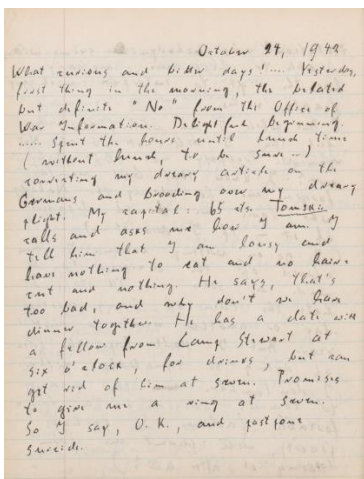 October 24, 1942
What curious and bitter days!.... Yesterday,
first thing in the morning, the belated
but definite "No" from the Office of
War Information. Delightful beginning.
..... Spent the hours until lunch time
(without lunch, to be sure...)
correcting my dreary article on the
Germans and brooding over my dreary
plight. My capital: 65 cts. Tomski
calls and asks me how I am. I
tell him that I am lousy and
have nothing to eat and no hair
cut and nothing. He says, that's
too bad, and why don't we have
dinner together. He has a date with
a fellow from Camp Stewart at
six o'clock, for drinks, but can
get rid of him at seven. Promises
to give me a ring at seven.
So I say, O.K., and postpone
suicide.